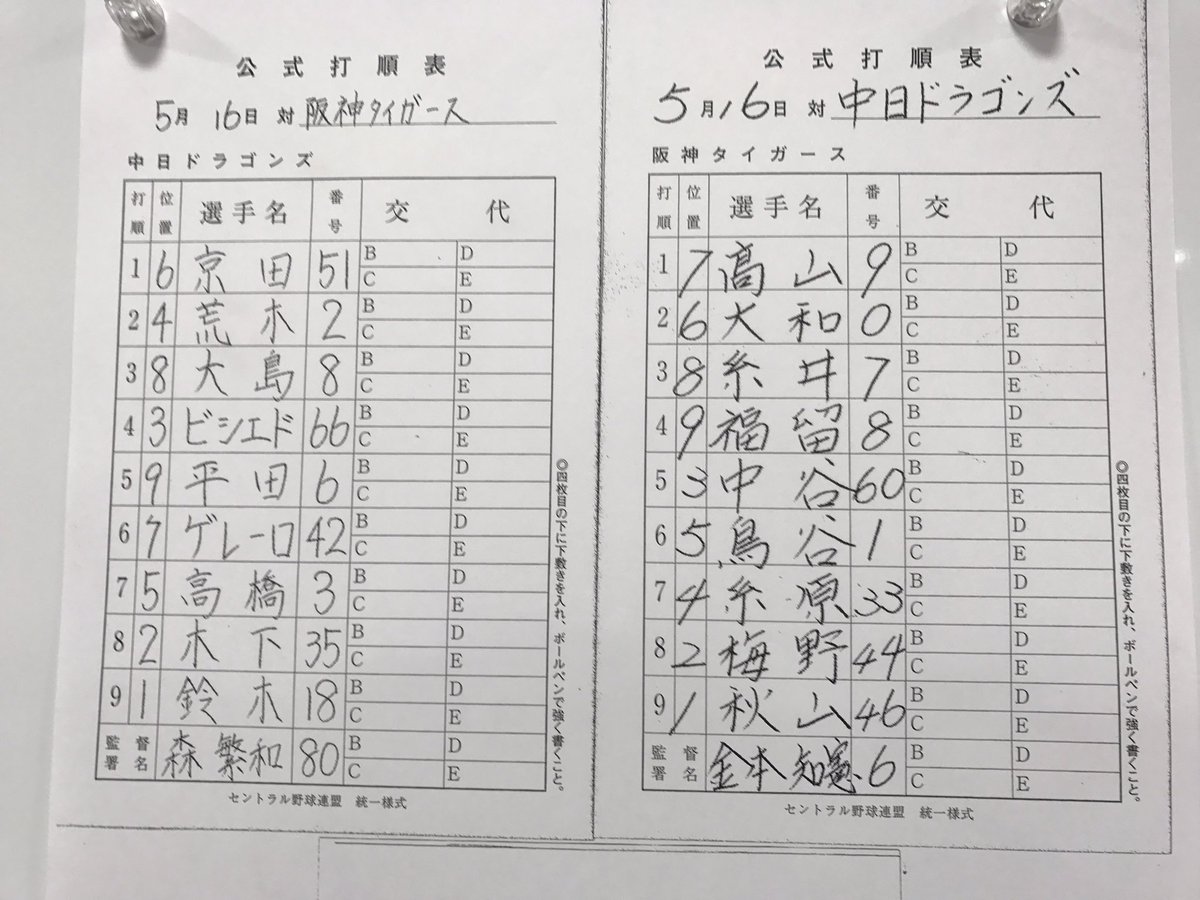 公式打順表
5月 16日 対 阪神タイガース
中日ドラゴンズ
打順 位置 選手名 番号 交代
1 6 京田 51 B D C E
2 4 荒木 2 B D C E
3 8 大島 8 B D C E
4 3 ビシエド 66 B D C E
5 9 平田 6 B D C E
6 7 ゲレーロ 42 B D C E
7 5 高橋 3 B D C E
8 2 木下 35 B D C E
9 1 鈴木 18 B D C E
監督署名 森繁和 80 B D C E
セントラル野球連盟 統一様式
◎四枚目の下に下敷きを入れ、ボールペンで強く書くこと。
公式打順表
5月16日 対 中日ドラゴンズ
阪神タイガース
打順 位置 選手名 番号 交代
1 7 髙山 9 B D C E
2 6 大和 0 B D C E
3 8 糸井 7 B D C E
4 9 福留 8 B D C E
5 3 中谷 60 B D C E
6 5 鳥谷 1 B D C E
7 4 糸原 33 B D C E
8 2 梅野 44 B D C E
9 1 秋山 46 B D C E
監督署名 金本知憲 6 B D C E
セントラル野球連盟 統一様式
◎四枚目の下に下敷きを入れ、ボールペンで強く書くこと。